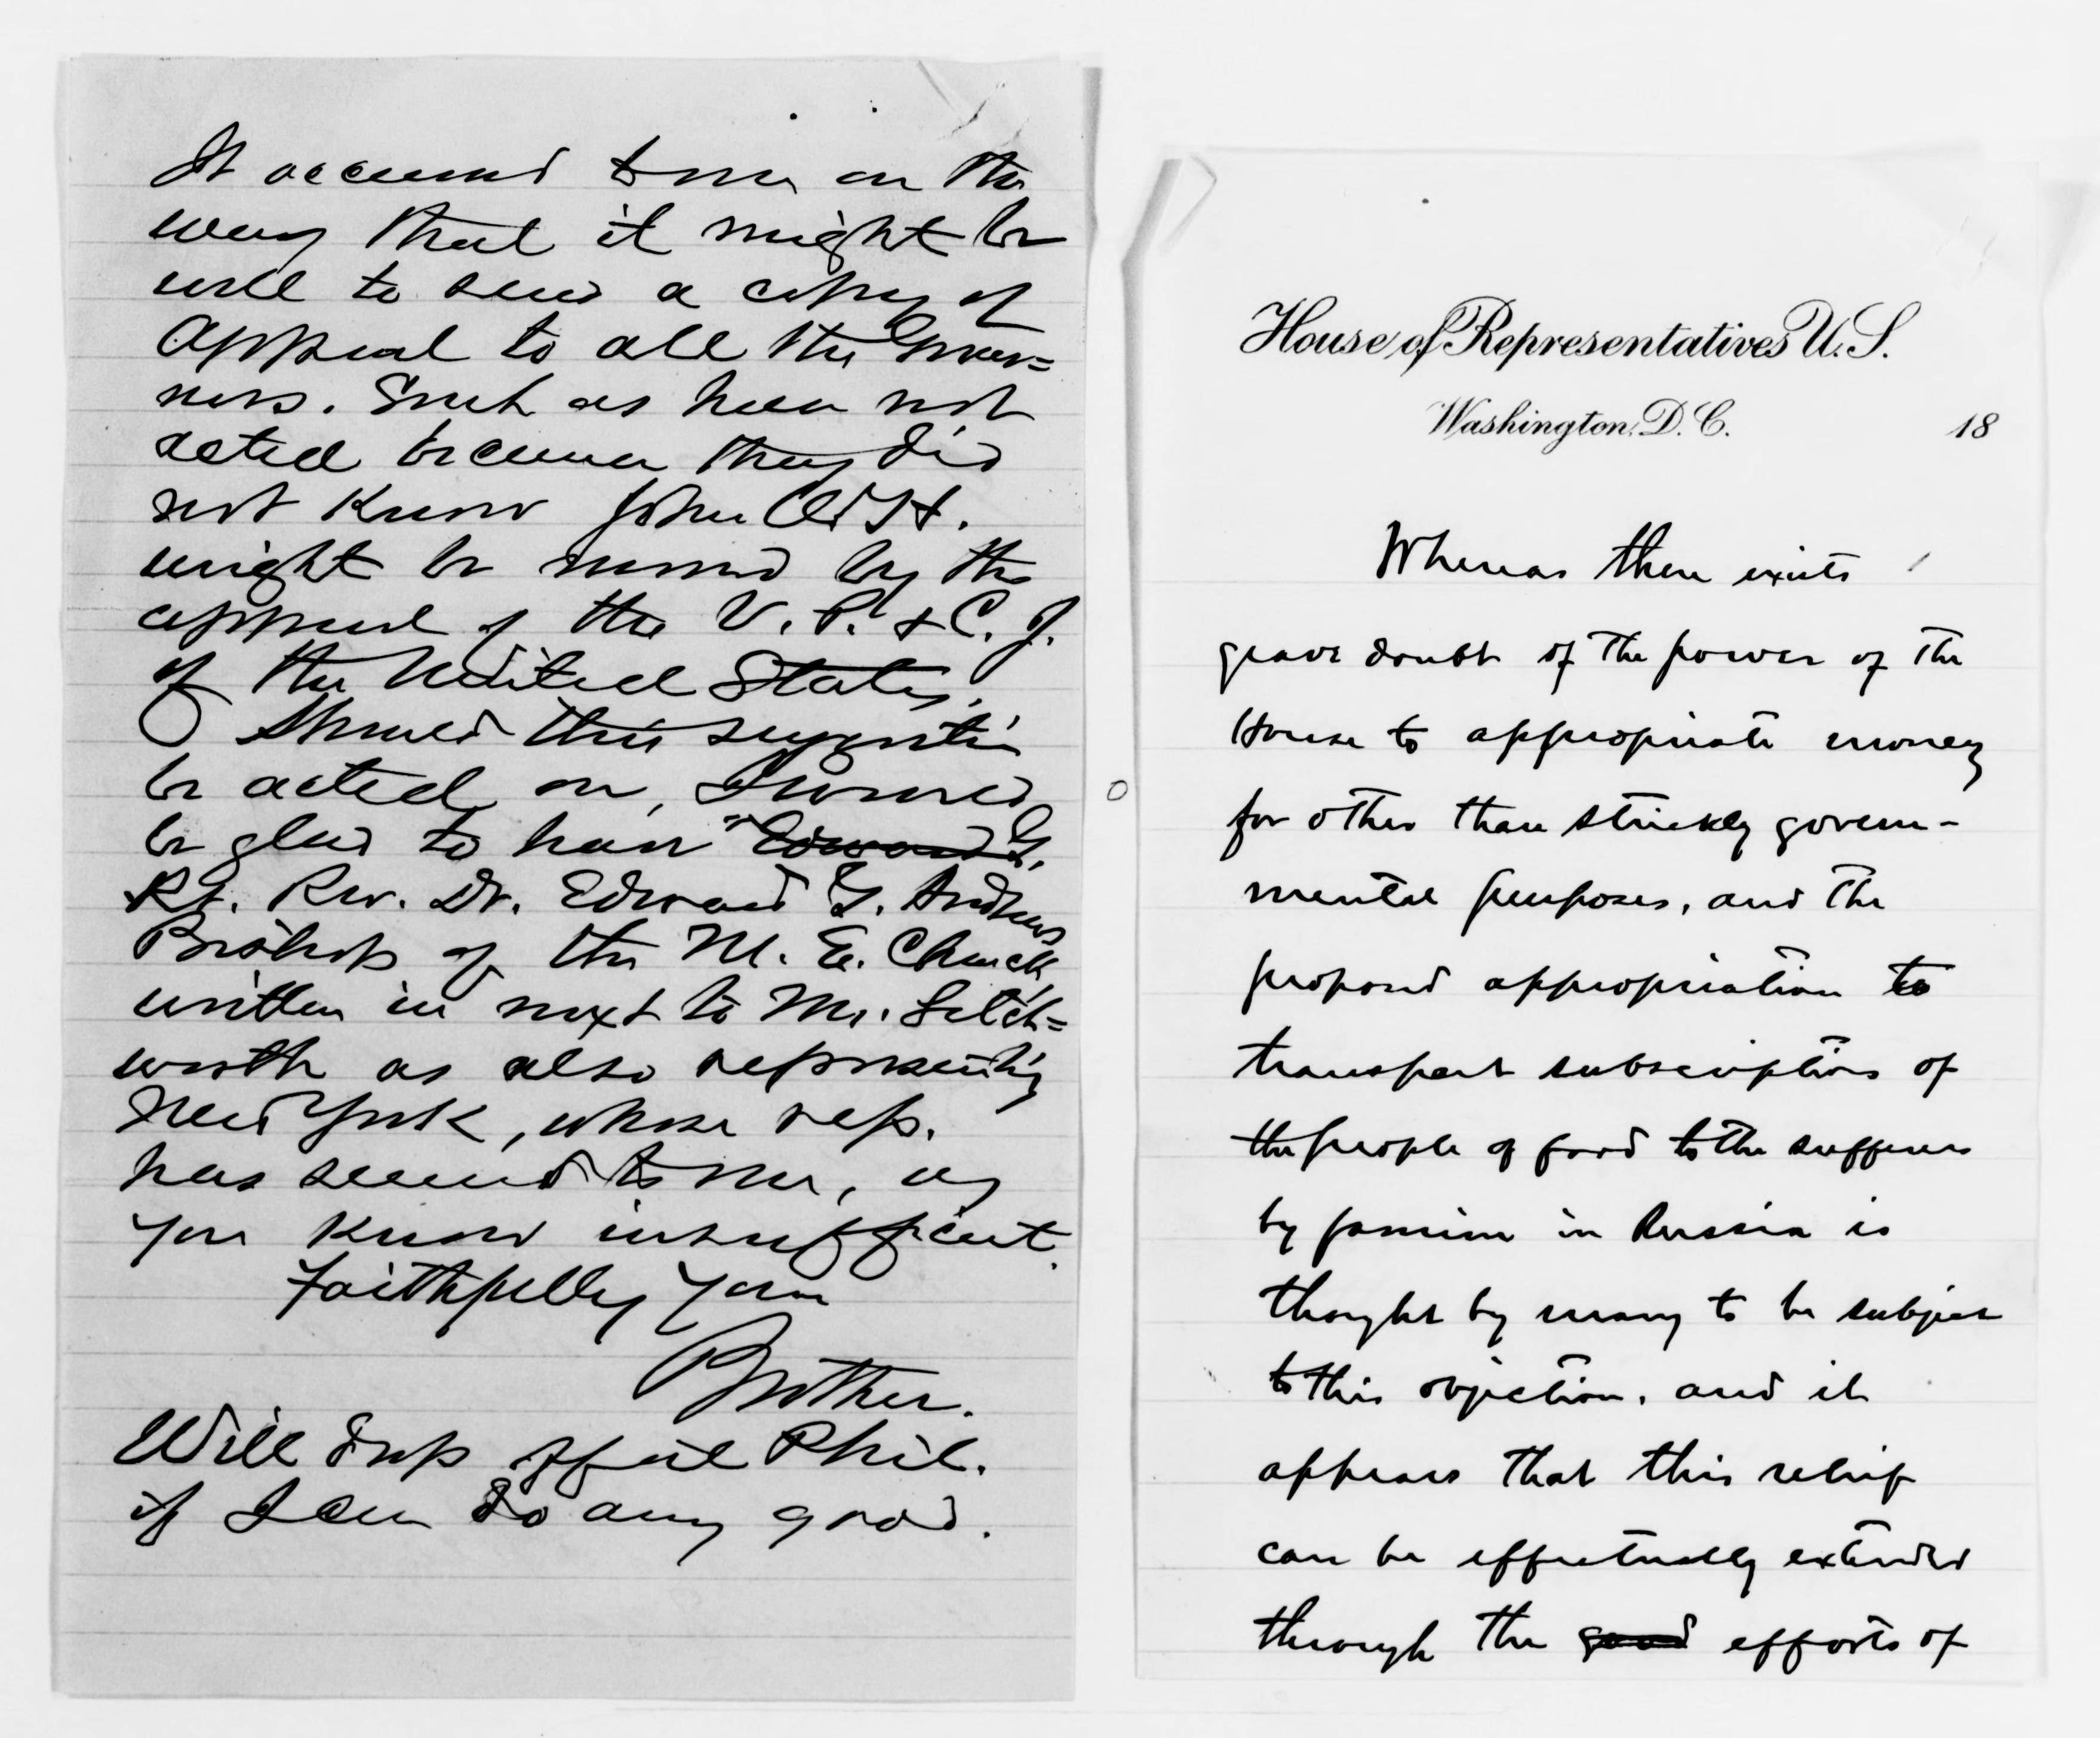 It occurred to me on the
way that it might be
well to send a copy of
Appeal to all the Gover=
nors. Such as have not
acted because they did
not know John W. H.
might be moved by the
appeal of the V. P. & C. J.
of the United States.
Should this suggestion
be acted on, I would
be glad to have "Edward G.
Rt. Rev. Dr. Edward G. Andrews
Bishop of the M. E. Church
written in next to Mr. Letch=
worth as also representing
New York, whose rep.
has seemed to me, as
you know insufficient.
Faithfully yours
Brother.
Will stop off at Phil.
if I can do any good.
House of Representatives U.S.
Washington, D. C. 18
Whereas there exists
grave doubt of the power of the
House to appropriate money
for other than strickly govern-
mental purposes, and the
proposed appropriation to
transport subscriptions of
the people of food to the sufferers
by famine in Russia is
thought by many to be subject
to this objection, and it
appears that this relief
can be effectually extended
through the good efforts of